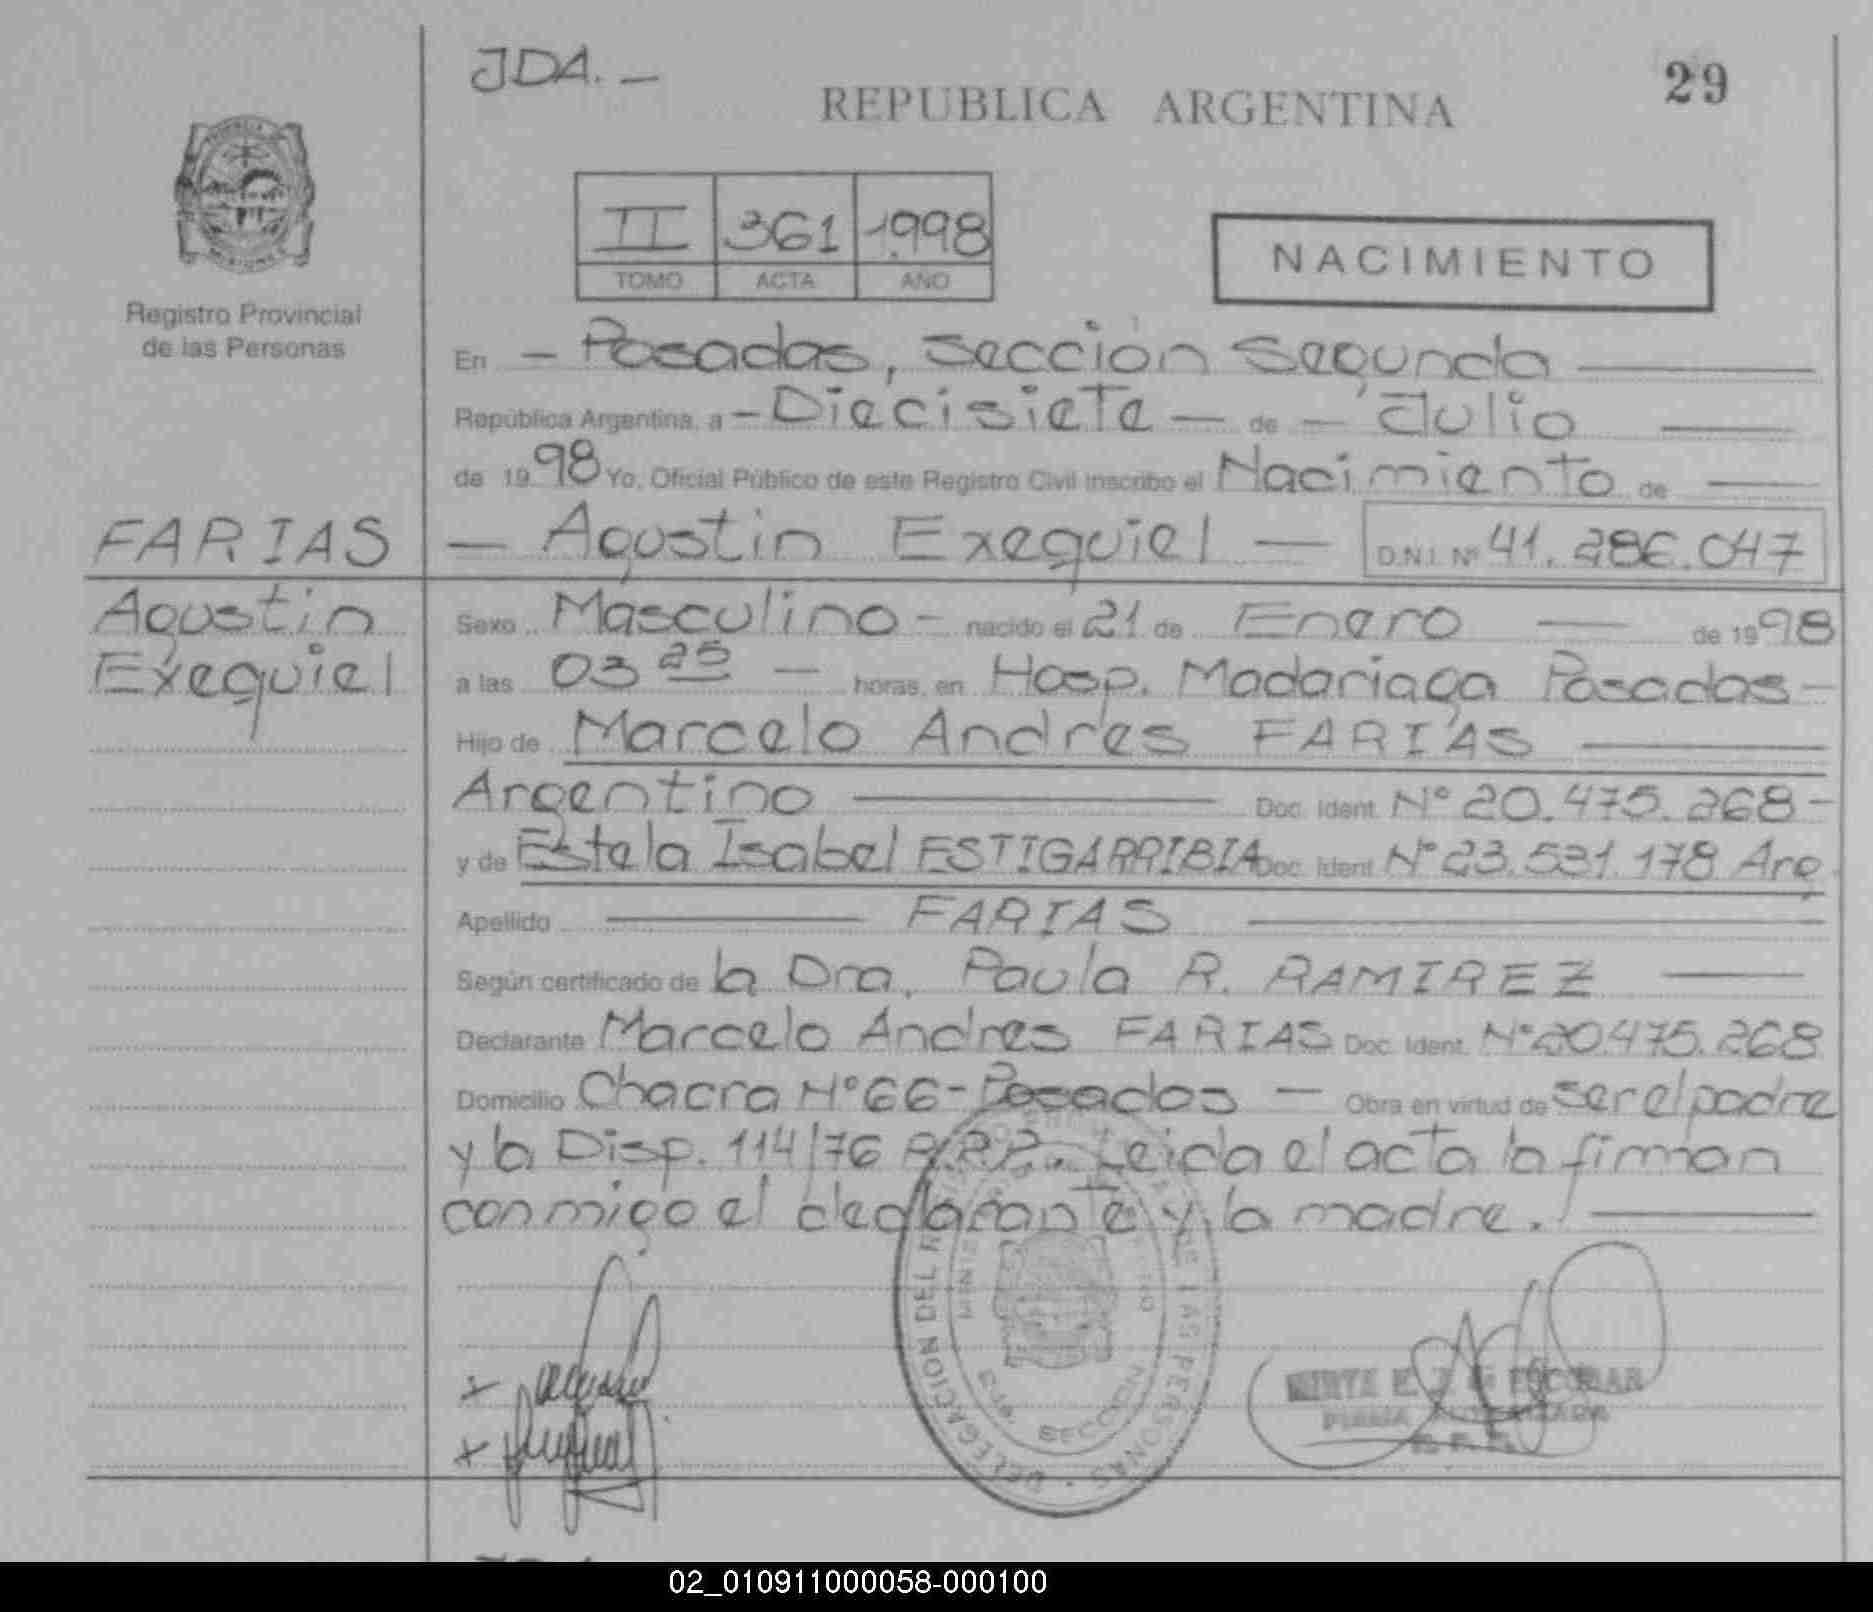 JDA. —
REPUBLICA ARGENTINA
29
II 361 1998
TOMO ACTA AÑO
NACIMIENTO
Registro Provincial
de las Personas
En — Posadas, Sección Segunda —
República Argentina, a — Diecisiete — de — Julio —
de 19 98 Yo, Oficial Público de este Registro Civil inscribo el Nacimiento de —
FARIAS — Agustin Exequiel — D.N.I. Nº 41.286.047
Agustin
Exequiel
Sexo Masculino — nacido el 21 de Enero — de 19 98
a las 03 25 — horas, en Hosp. Madariaga Posadas —
Hijo de Marcelo Andrés FARIAS —
Argentino — Doc. Ident. Nº 20.475.268 —
y de Estela Isabel ESTIGARRIBIA Doc. Ident. Nº 23.531.178 Arg
Apellido — FARIAS —
Según certificado de la Dra. Paula R. RAMIREZ —
Declarante Marcelo Andres FARIAS Doc. Ident. Nº 20.475.268
Domicilio Chacra Nº 66 - Posadas — Obra en virtud de ser el padre
y la Disp. 114/76 R.P.P.. Leida el acta la firman
conmigo el declarante y la madre. —
DELEGACION DEL REGISTRO DE LAS PERSONAS
SECCION
ESCOBAR
FIRMA AUTORIZADA
02_010911000058-000100